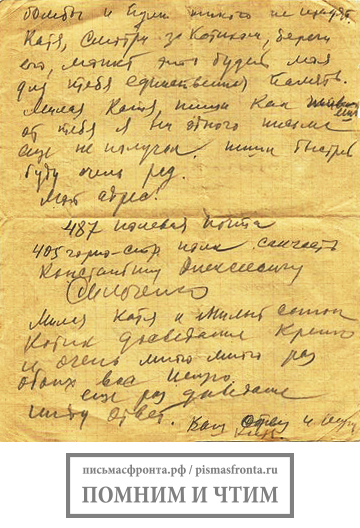 бомбы и пули никого не щадят
Катя, смотри за Котиком, береги
его, может это будет моя
для тебя единственная память.
Милая Катя, пиши как
от тебя я ни одного письма
еще не получал. пиши быстрей
буду очень рад.
Мой адрес:
487 полевая почта
405 горно-стр полк санчасть
Константину Алексеевичу
Милая Катя и милый сынок
Котик досвидание крепко
и очень много много раз
обоих вас целую
еще раз досвидание
жду ответ.
Ваш отец и муж
письмасфронта.рф / pismasfronta.ru
ПОМНИМ И ЧТИМ